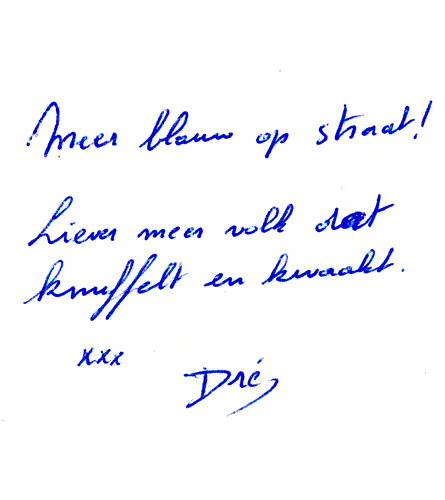 Meer blauw op straat!
Liever meer volk dat
knuffelt en kwaakt.
xxx
Dré